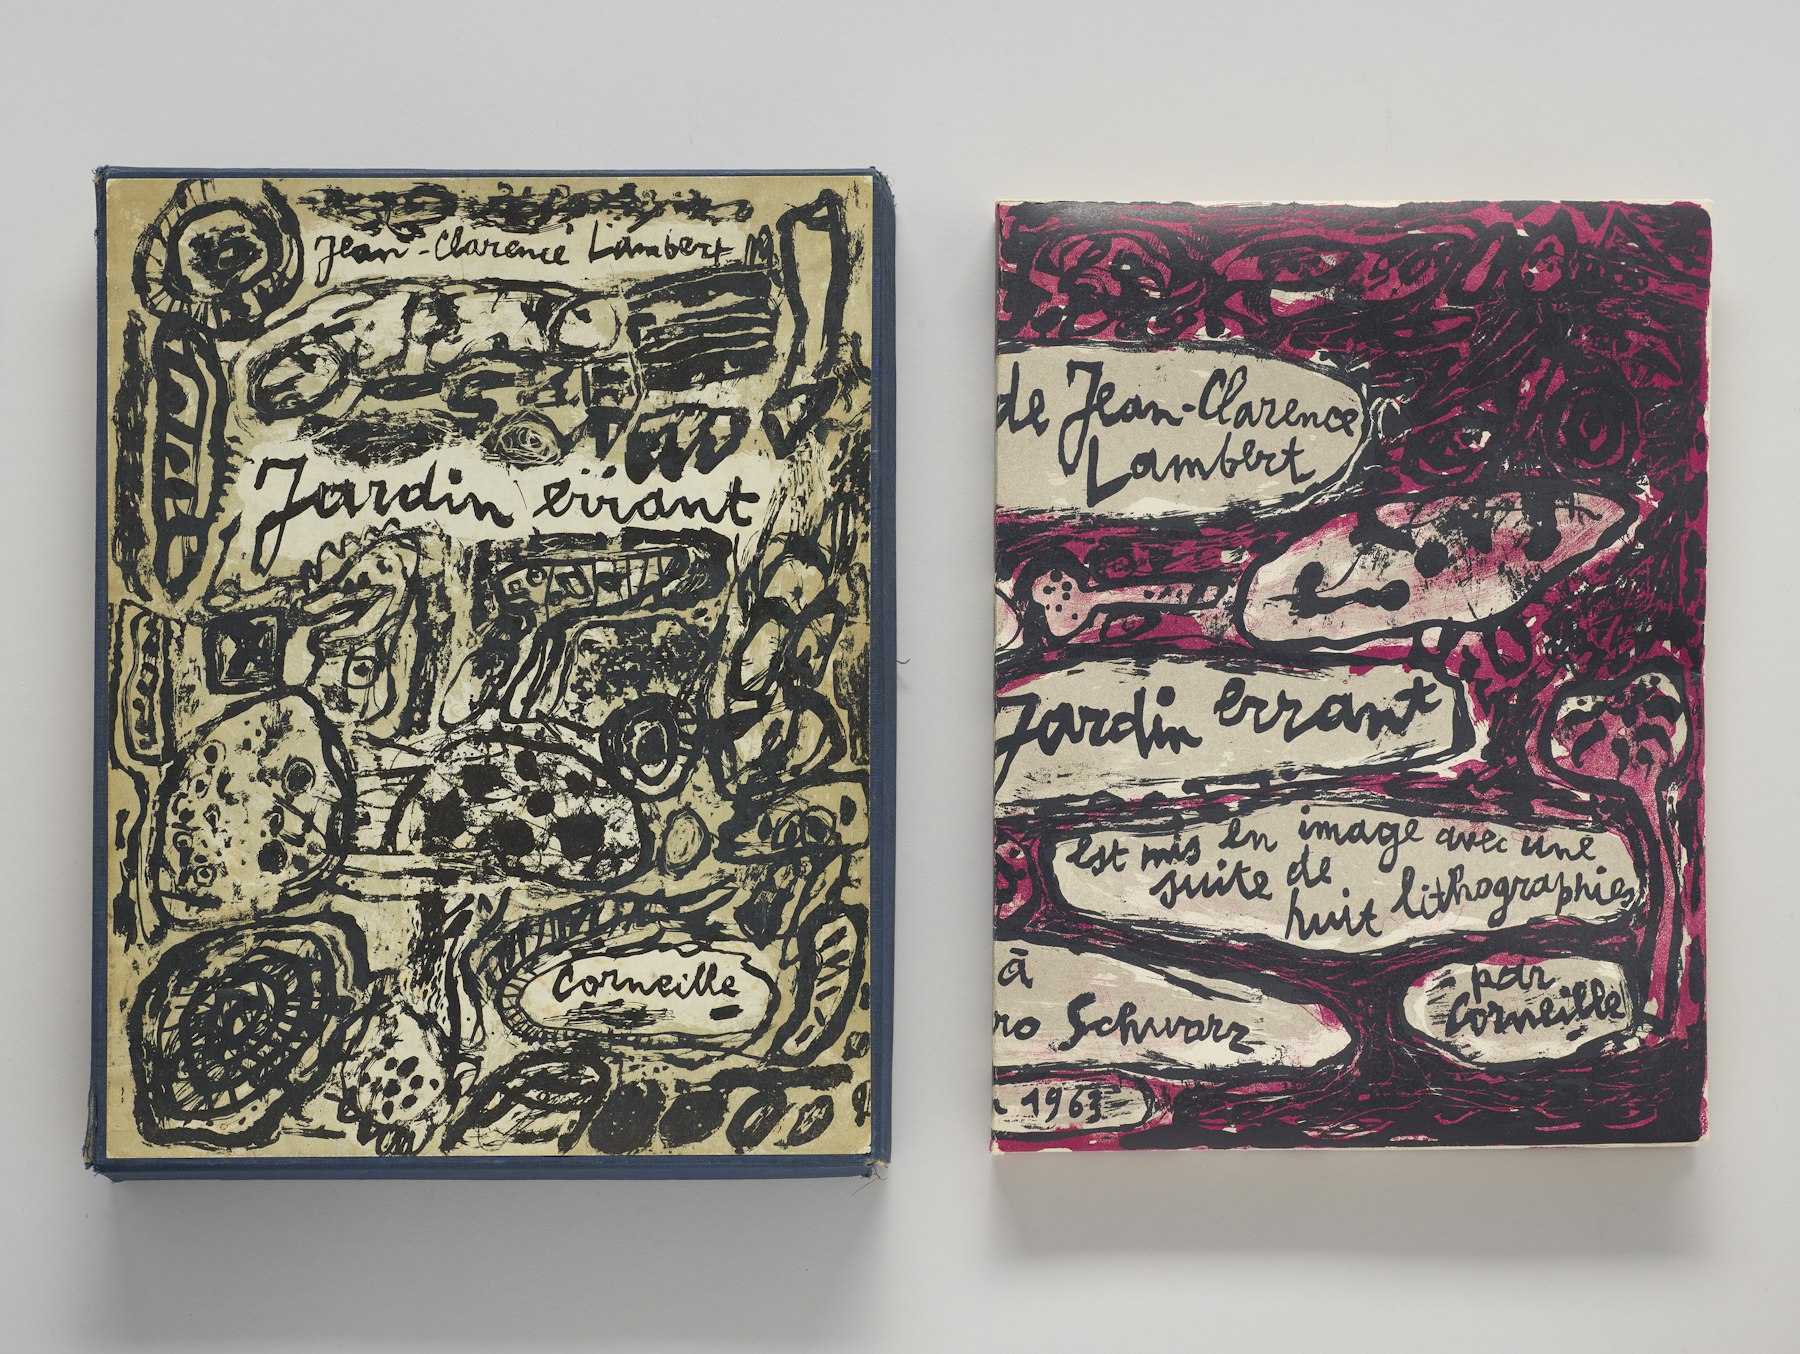 Jean-Clarence Lambert
Jardin errant
Corneille
de Jean-Clarence
Lambert
Jardin errant
est mis en image avec une
suite de
huit lithographies
à
ro Schwarz
par
Corneille
1963